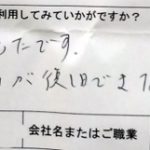 利用してみていかがですか?
したです。
が復旧できた
会社名またはご職業